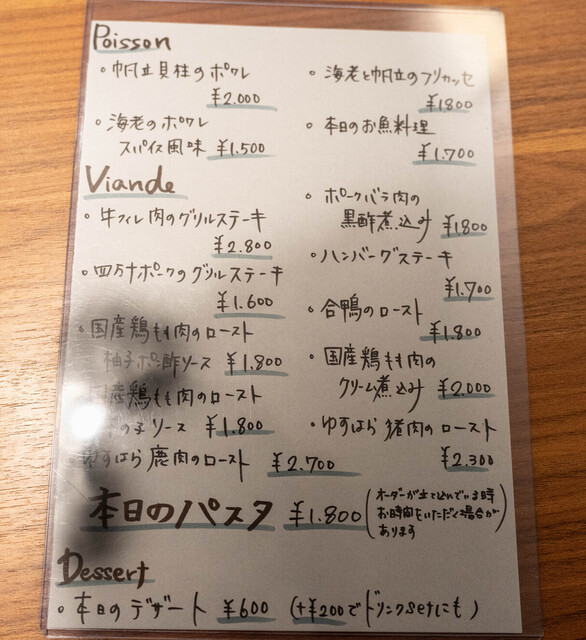 Poisson
・帆立貝柱のポワレ
¥2.000
・海老のポワレ
スパイス風味 ¥1.500
・海老と帆立のフリカッセ
¥1800
・本日のお魚料理
¥1.700
Viande
・牛フィレ肉のグリルステーキ
¥2.800
・四万十ポークのグリルステーキ
¥1.600
・国産鶏もも肉のロースト
柚子ポン酢ソース ¥1.800
産鶏もも肉のロースト
の子ソース ¥1.800
ゆすはら鹿肉のロースト ¥2.700
・ポークバラ肉の
黒酢煮込み ¥1800
・ハンバーグステーキ
¥1.700
・合鴨のロースト
¥1.800
・国産鶏もも肉の
クリーム煮込み ¥2.000
・ゆすはら猪肉のロースト
¥2.300
本日のパスタ ¥1.800
(オーダーが立て込んでいる時
お時間をいただく場合が
あります)
Dessert
・本日のデザート ¥600 (+¥200でドリンクsetにも)